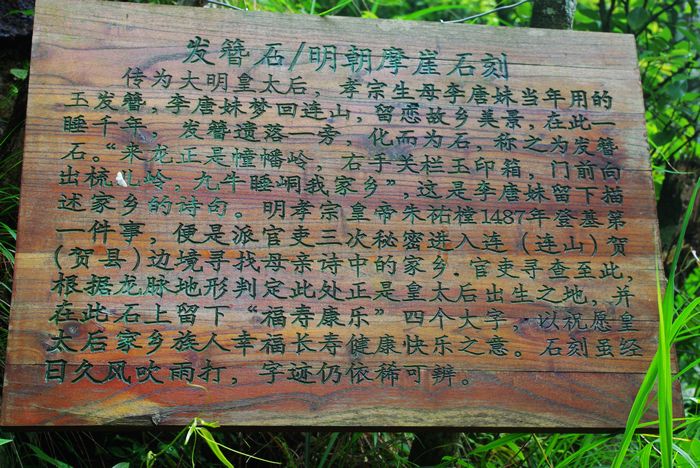 发簪石/明朝摩崖石刻
传为大明皇太后，孝宗生母李唐妹当年用的
玉发簪，李唐妹梦回连山，留恋故乡美景，在此一
睡千年，发簪遗落一旁，化而为石，称之为发簪
石。“来龙正是幢幡岭，右手关栏玉印箱，门前向
出梳儿岭，九牛睡峒我家乡”这是李唐妹留下描
述家乡的诗句。明孝宗皇帝朱祐樘1487年登基第
一件事，便是派官吏三次秘密进入连（连山）贺
（贺县）边境寻找母亲诗中的家乡.官吏寻查至此，
根据龙脉地形判定此处正是皇太后出生之地，并
在此石上留下“福寿康乐”四个大字，以祝愿皇
太后家乡族人幸福长寿健康快乐之意。石刻虽经
日久风吹雨打，字迹仍依稀可辨。